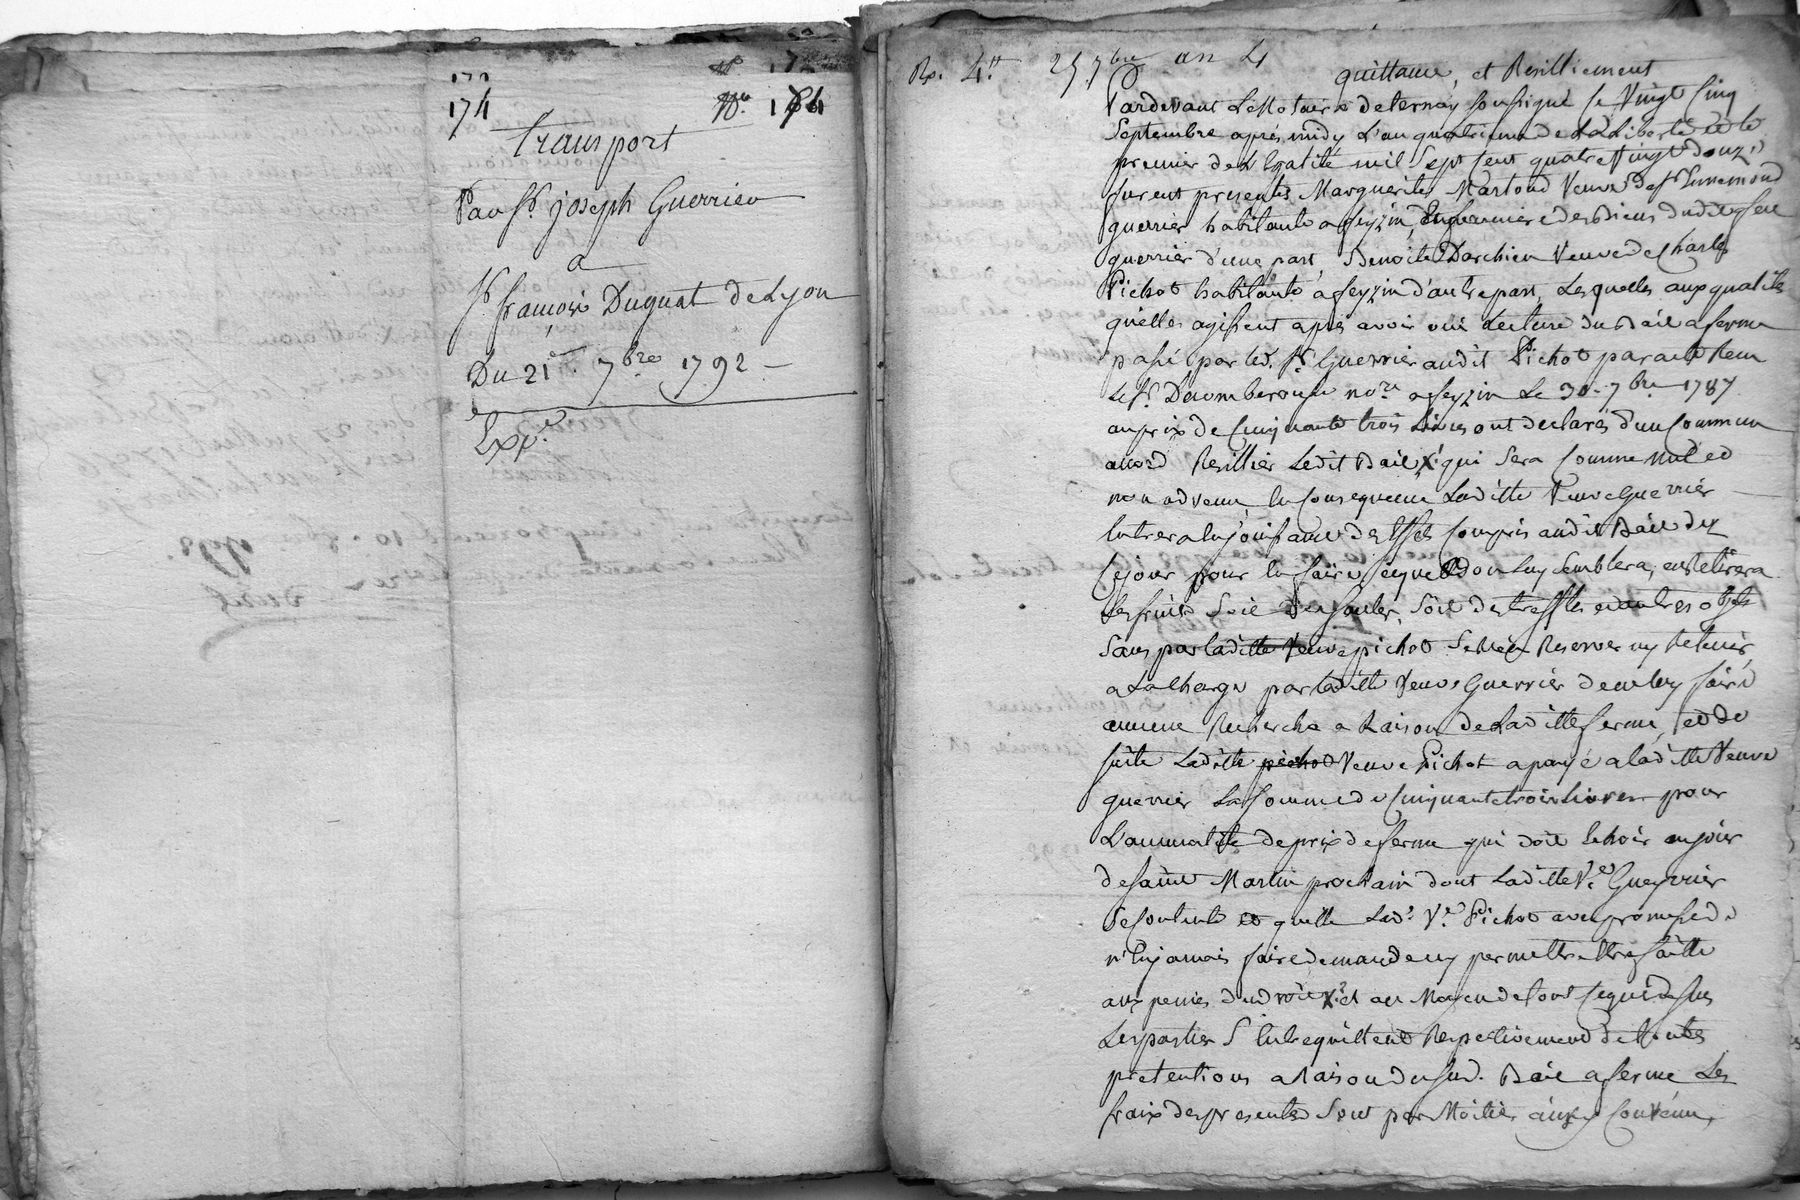 174
No. 174
Transport
Par Sr. joseph Guerrier
a
Sr. françois Duguat de Lyon
Du 21e. 7bre 1792 -
Expé.
Rp. 4tt 25 7bre an 4
quittance, et Resilliement
Pardevant Le Notaire de ternay soussigné le Vingt Cinq
Septembre après midy L'an quatrieme de La Liberté et le
premier de L'Egalité mil Sept Cent quatre Vingt douze
furent presentes Marguerite Martoud Veuve de Sr Ennemond
guerrier habitante a feyzin, Enfermiere des Biens dudit feu
guerrier d'une part Benoite Darchieu Veuve de Charles
Pichot habitante a feyzin d'autre part, Lesquelles aux qualités
quelles agissent après avoir oui Lecture du Bail a ferme
passé par led. Sr. Guerrier audit Pichot par acte Reçu
Le Sr. nore a feyzin Le 30 7bre 1787
au prix de Cinquante trois Livres ont declarés d'un Commun
accord Resillier Ledit Bail X qui Sera Comme nul et
non advenu En Consequence Laditte Veuve Guerrier
Entrera En joüissance des Effets Compris audit Bail dez
Ce jour pour En faire Ceque bon Luy Semblera, en Retirera
Les fruits Soit Soit des treffles et autres objets
Sans par laditte Veuve pichot Se Rien Reserver ny Retenir
a La Charge par laditte Veuve Guerrier de ne luy faire
aucune Recherche a Raison de Laditte ferme, et de
suite Laditte pichot Veuve Pichot a payé a laditte Veuve
guerrier La Somme de Cinquante trois livres pour
L'annualité de prix de ferme qui doit Echoir au jour
de Saint Martin prochain dont Laditte Ve. Guerrier
Se Contente et quitte Lad. Ve Pichot avec promesse de
n'En jamais faire demande ny permettre Etre faitte
aux peines du droit X et au Moyen de tout Ceque dessus
Les parties S'Entrequittent Respectivement de toutes
pretentions a Raison du susd. Bail a ferme Les
fraix des presentes Sont par Moitié ainsy Convenu,